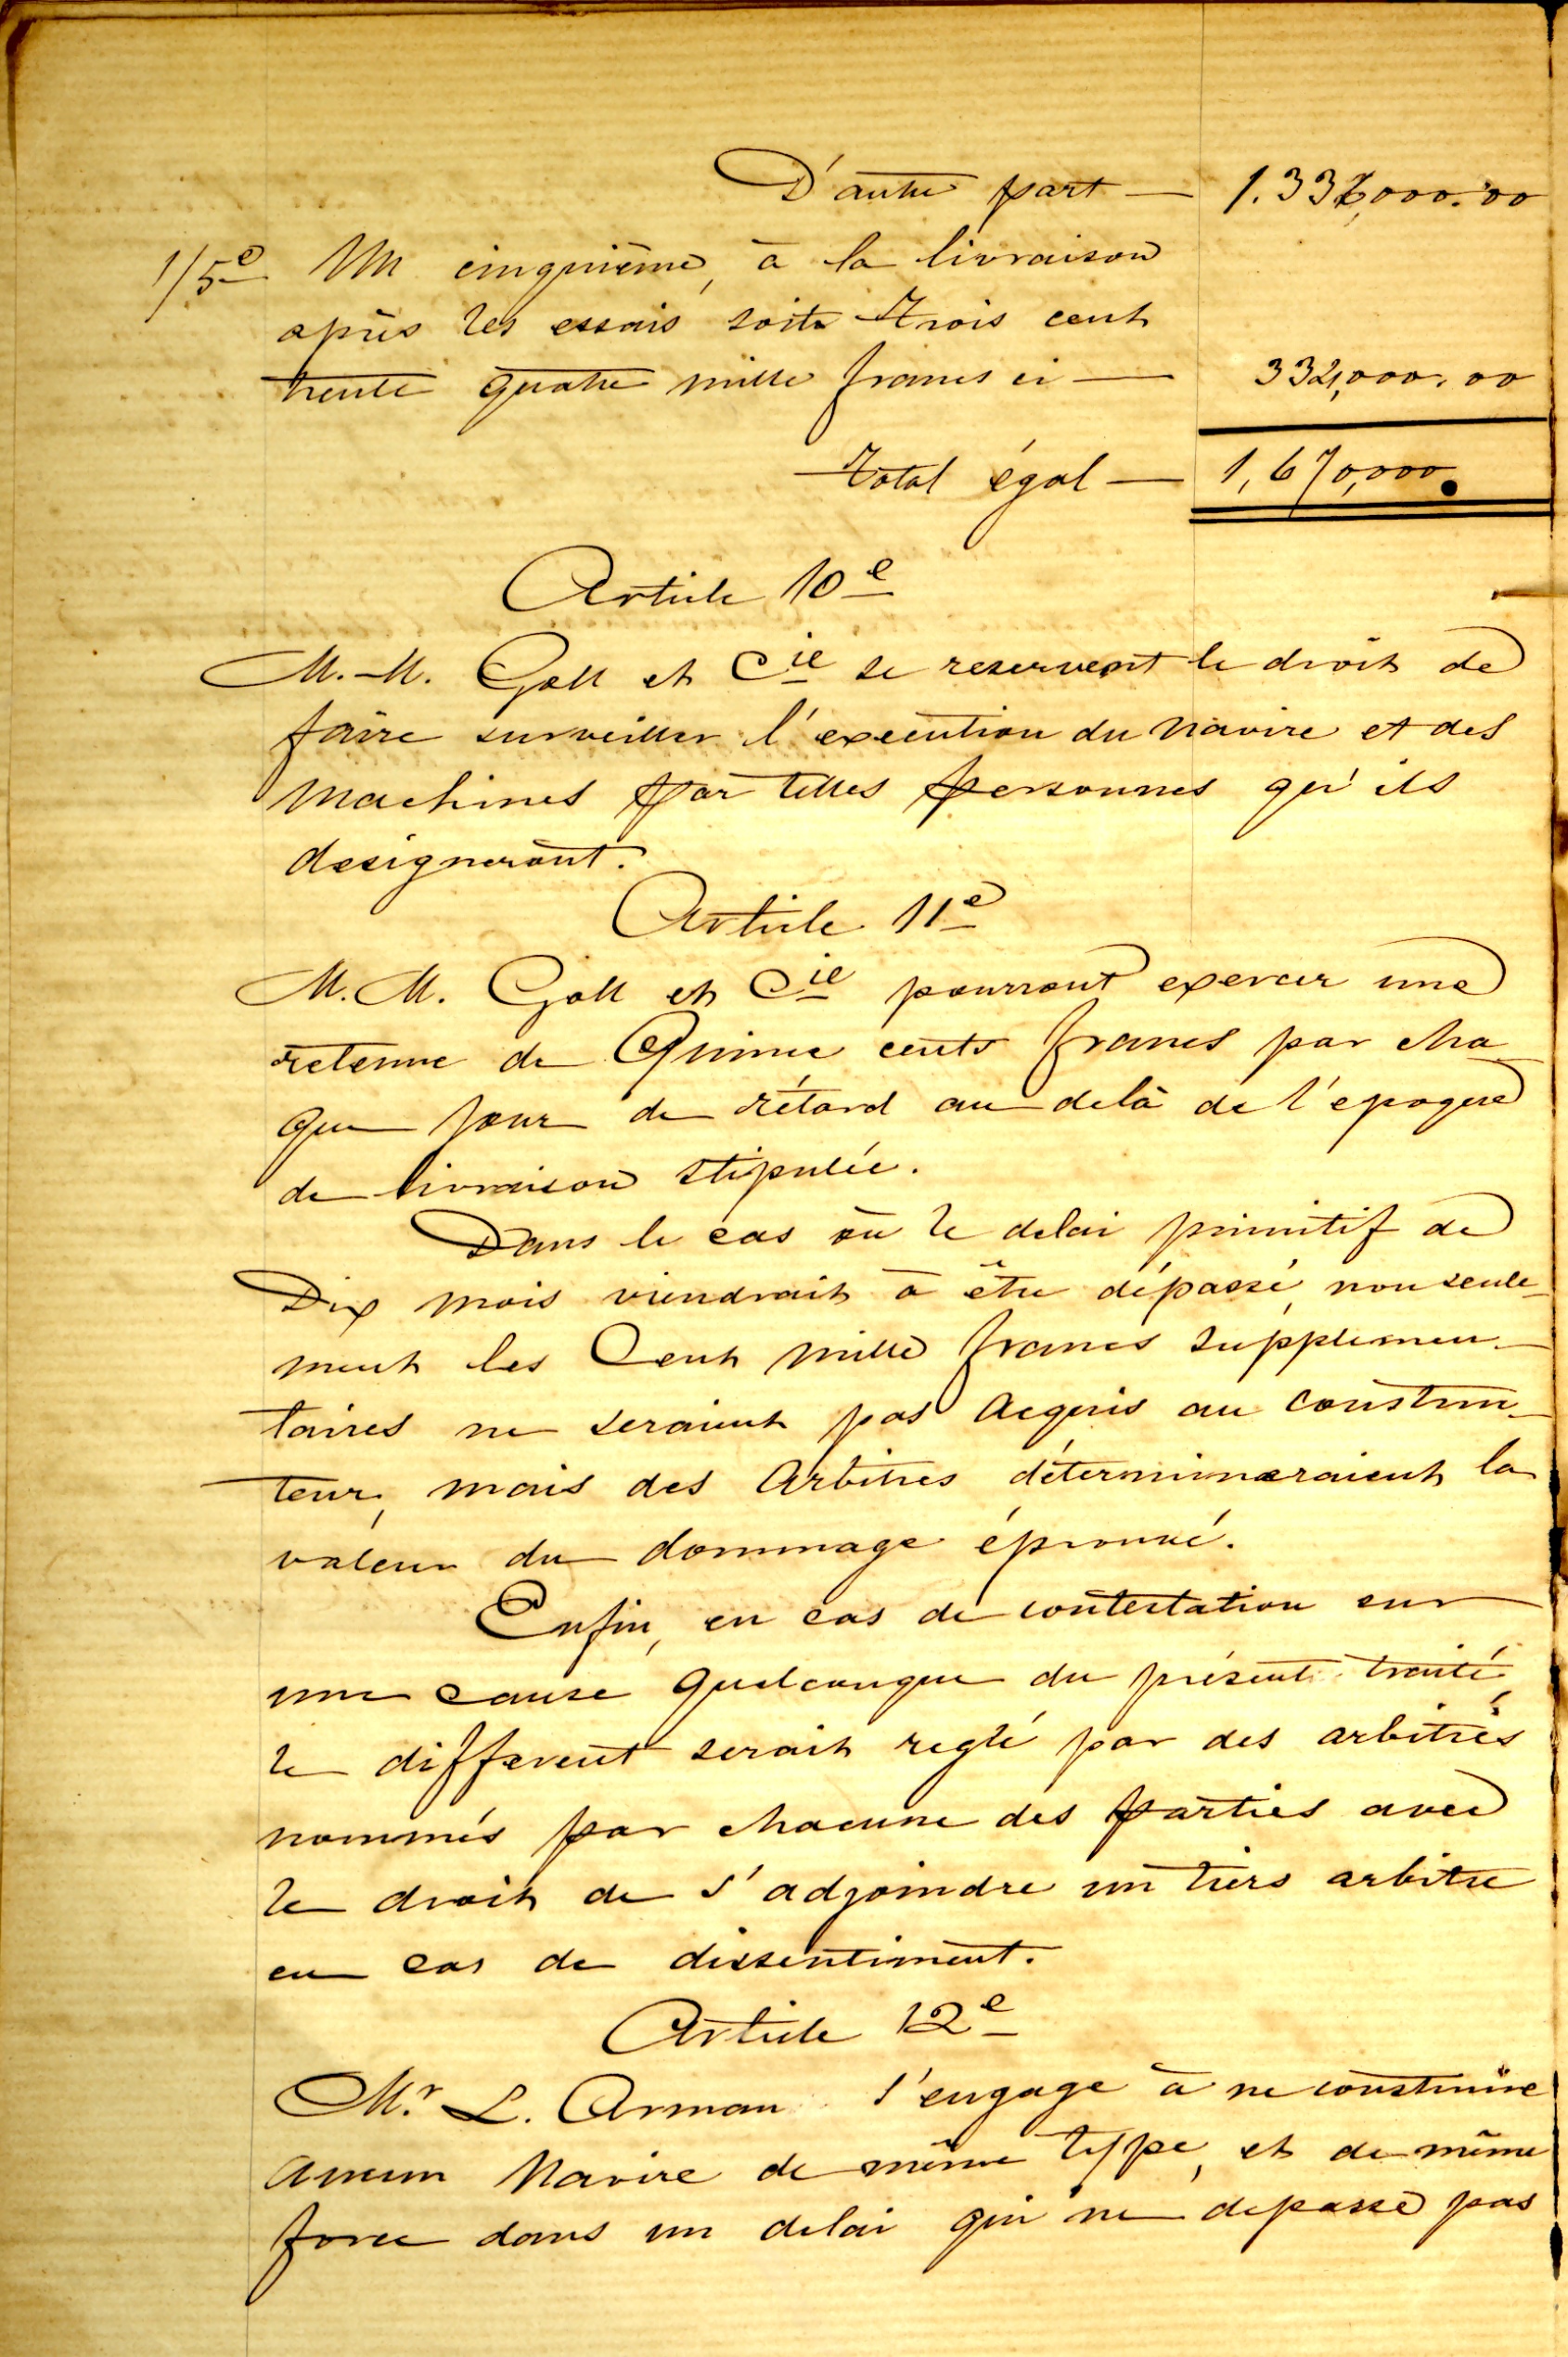 D'autre part — 1.336,000.00
1/5e Un cinquième, à la livraison
après les essais soit trois cent
trente quatre mille francs ci — 334,000.00
Total égal — 1,670,000.
Article 10e
M.M. Gall et Cie se reservent le droit de
faire surveiller l'execution du navire et des
machines par telles personnes qu'ils
designeront.
Article 11e
M.M. Gall et Cie pourront exercer une
retenue de Quinze cents francs par cha
que jour de rétard au delà de l'epoque
de livraison stipulée.
Dans le cas où le delai primitif de
Dix mois viendrait à être dépassé, non seule-
ment les Cent mille francs supplemen-
taires ne seraient pas acquis au construc-
teur, mais des Arbitres détermineraient la
valeur du dommage éprouvé.
Enfin, en cas de contestation sur
une cause quelconque du présent traité,
le different serait reglé par des arbitres
nommés par chacune des parties avec
le droit de s'adjoindre un tiers arbitre
en cas de dissentiment.
Article 12e
Mr. L. Arman s'engage à ne construire
aucun Navire de même type, et de même
force dans un delai qui ne depasse pas